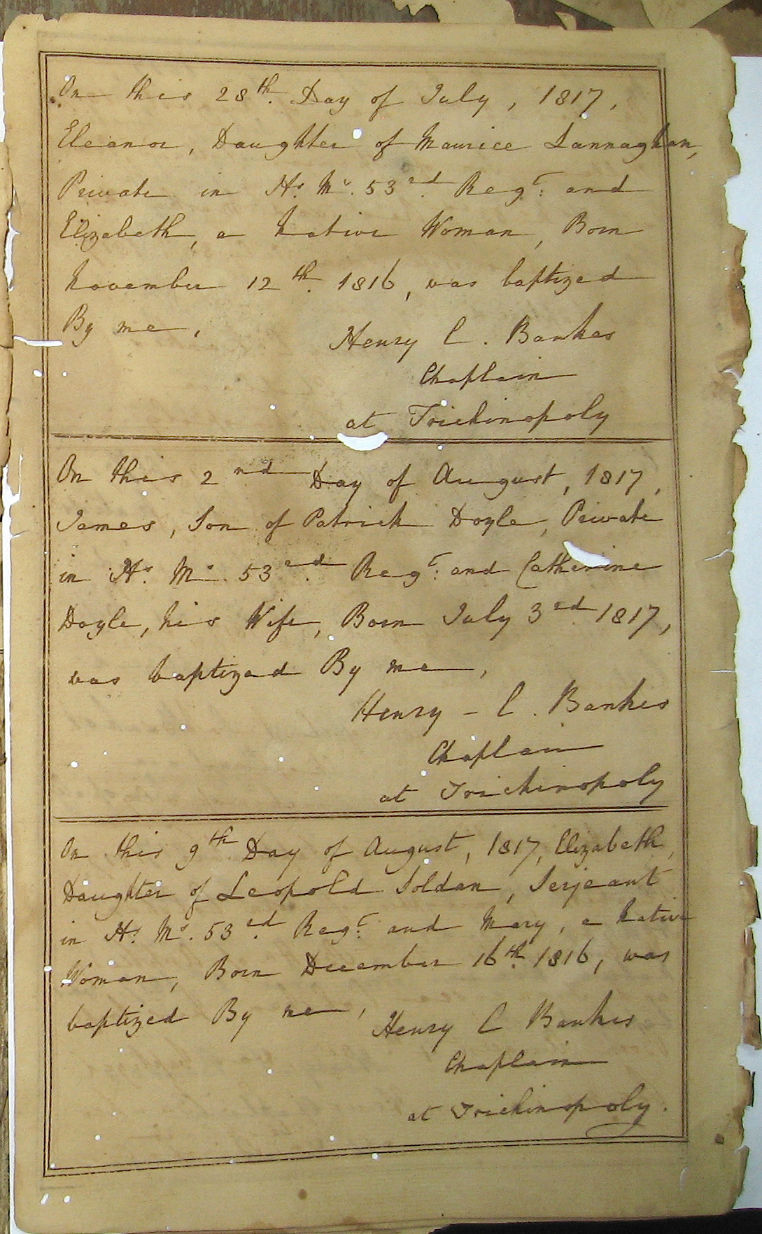 On this 28th Day of July, 1817,
Eleanor, Daughter of Maurice Lannaghan,
Private in H.s M.s 53rd Regt. and
Elizabeth, a Native Woman, Born
November 12th. 1816, was baptized
By me,
Henry C. Bankes
Chaplain
at Trichinopoly
On this 2nd Day of August, 1817,
James, Son of Patrick Doyle, Private
in H.s M.s 53rd Regt. and Catherine
Doyle, his Wife, Born July 3rd 1817,
was baptized By me,
Henry - C. Bankes
Chaplain
at Trichinopoly
On this 9th Day of August, 1817, Elizabeth,
Daughter of Leopold Soldan, Serjeant
in H.s M.s 53rd Regt. and Mary, a Native
Woman, Born December 16th. 1816, was
baptized By me,
Henry C Bankes
Chaplain
at Trichinopoly.